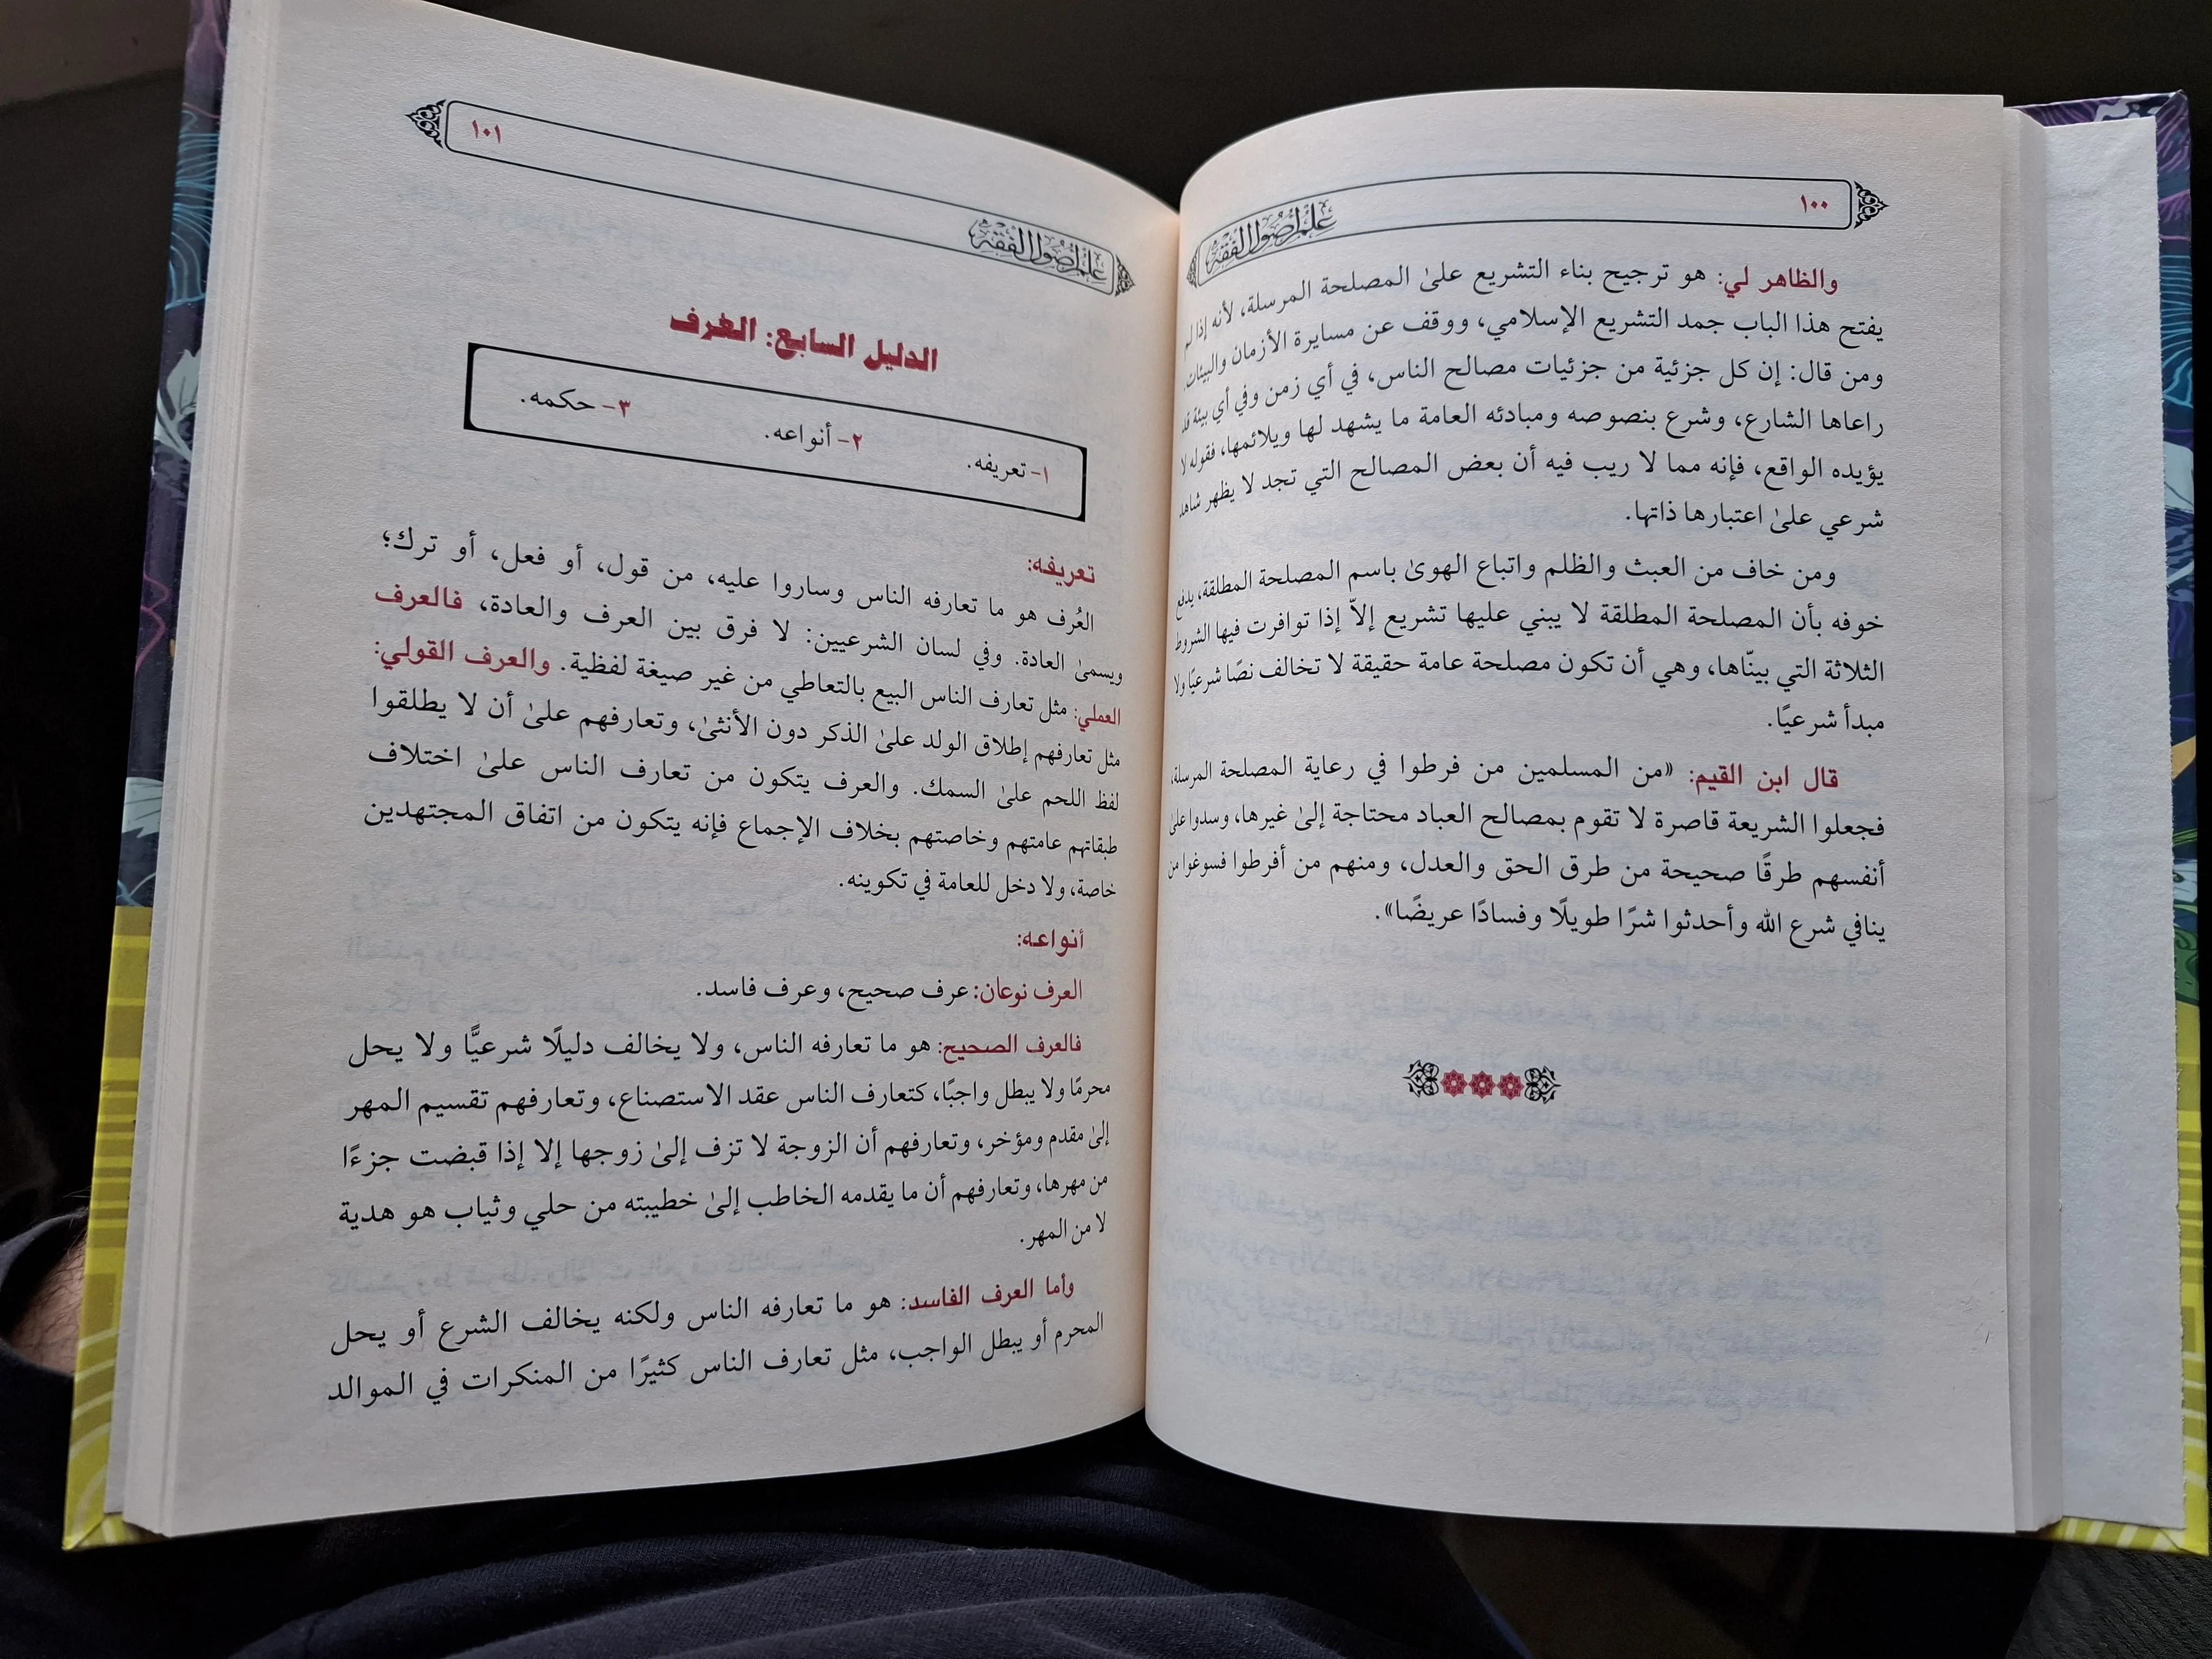 ١٠٠
علم أصول الفقه
والظاهر لي: هو ترجيح بناء التشريع علىٰ المصلحة المرسلة، لأنه إذا لم
يفتح هذا الباب جمد التشريع الإسلامي، ووقف عن مسايرة الأزمان والبيئات.
ومن قال: إن كل جزئية من جزئيات مصالح الناس، في أي زمن وفي أي بيئة قد
راعاها الشارع، وشرع بنصوصه ومبادئه العامة ما يشهد لها ويلائمها، فقوله لا
يؤيده الواقع، فإنه مما لا ريب فيه أن بعض المصالح التي تجد لا يظهر شاهد
شرعي علىٰ اعتبارها ذاتها.
ومن خاف من العبث والظلم واتباع الهوىٰ باسم المصلحة المطلقة، يدفع
خوفه بأن المصلحة المطلقة لا يبني عليها تشريع إلاّ إذا توافرت فيها الشروط
الثلاثة التي بينّاها، وهي أن تكون مصلحة عامة حقيقة لا تخالف نصًا شرعيًا ولا
مبدأ شرعيًا.
قال ابن القيم: «من المسلمين من فرطوا في رعاية المصلحة المرسلة،
فجعلوا الشريعة قاصرة لا تقوم بمصالح العباد محتاجة إلىٰ غيرها، وسدوا علىٰ
أنفسهم طرقًا صحيحة من طرق الحق والعدل، ومنهم من أفرطوا فسوغوا من
ينافي شرع الله وأحدثوا شرًا طويلًا وفسادًا عريضًا».
١٠١
علم أصول الفقه
الدليل السابع: العُرف
١- تعريفه. ٢- أنواعه. ٣- حكمه.
تعريفه:
العُرف هو ما تعارفه الناس وساروا عليه، من قول، أو فعل، أو ترك؛
ويسمىٰ العادة. وفي لسان الشرعيين: لا فرق بين العرف والعادة، فالعرف
العملي: مثل تعارف الناس البيع بالتعاطي من غير صيغة لفظية. والعرف القولي:
مثل تعارفهم إطلاق الولد علىٰ الذكر دون الأنثىٰ، وتعارفهم علىٰ أن لا يطلقوا
لفظ اللحم علىٰ السمك. والعرف يتكون من تعارف الناس علىٰ اختلاف
طبقاتهم عامتهم وخاصتهم بخلاف الإجماع فإنه يتكون من اتفاق المجتهدين
خاصة، ولا دخل للعامة في تكوينه.
أنواعه:
العرف نوعان: عرف صحيح، وعرف فاسد.
فالعرف الصحيح: هو ما تعارفه الناس، ولا يخالف دليلًا شرعيًّا ولا يحل
محرمًا ولا يبطل واجبًا، كتعارف الناس عقد الاستصناع، وتعارفهم تقسيم المهر
إلىٰ مقدم ومؤخر، وتعارفهم أن الزوجة لا تزف إلىٰ زوجها إلا إذا قبضت جزءًا
من مهرها، وتعارفهم أن ما يقدمه الخاطب إلىٰ خطيبته من حلي وثياب هو هدية
لا من المهر.
وأما العرف الفاسد: هو ما تعارفه الناس ولكنه يخالف الشرع أو يحل
المحرم أو يبطل الواجب، مثل تعارف الناس كثيرًا من المنكرات في الموالد